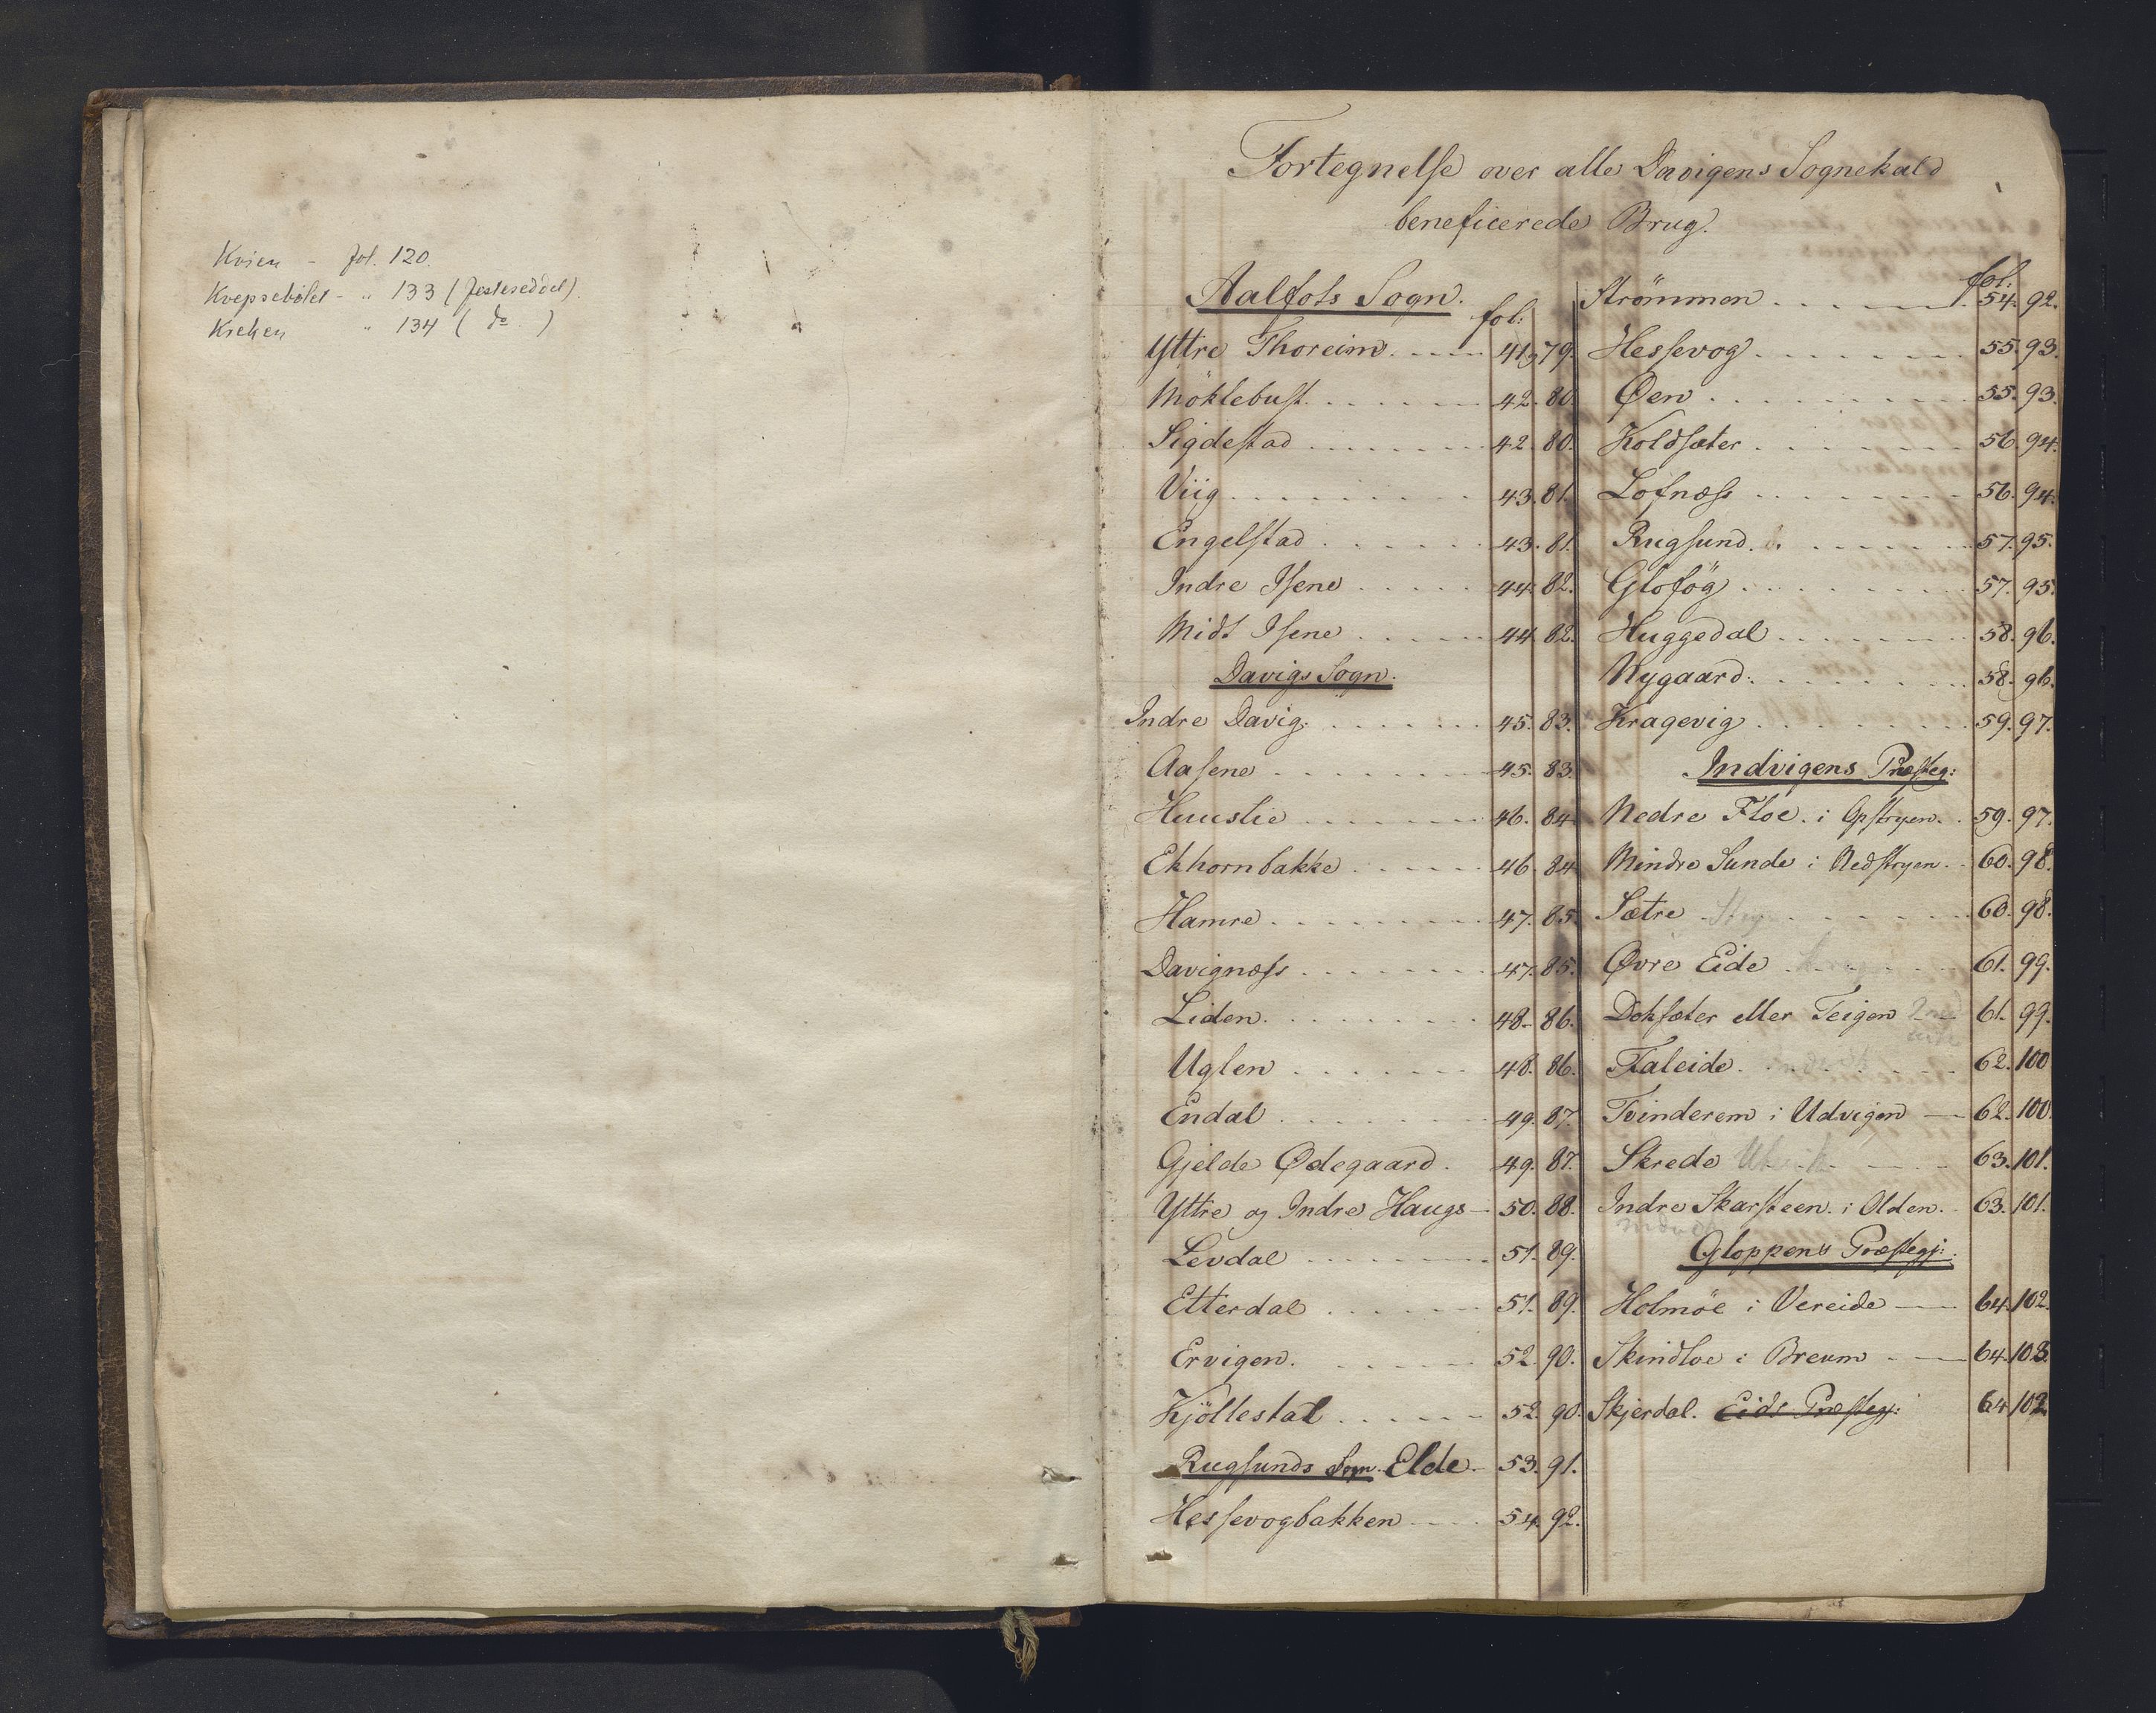 Kvien - fol. 120.
Kvepsebölet - " 133 (festeseddel).
Kreken " 134 ( do )
Fortegnelse over alle Davigens Sognekald
beneficerede Brug.
Aalfots Sogn.
fol:
Yttre Thoreim. 41. 79.
Möklebust. 42. 80.
Sigdestad 42. 80.
Viig 43. 81.
Engelstad 43. 81.
Indre Isene 44. 82.
Midt Isene 44. 82.
Davigs Sogn.
Indre Davig. 45. 83.
Aasene 45. 83.
Huuslie 46. 84.
Ekhornbakke 46. 84.
Hamre. 47. 85.
Davignæss 47. 85.
Liden. 48. 86.
Uglen 48. 86.
Endal 49. 87.
Gjelde Ødegaard. 49. 87.
Yttre og Indre Haugs 50. 88.
Levdal 51. 89.
Etterdal 51. 89.
Ervigen. 52. 90.
Kjöllestal 52. 90.
Rugsunds Sogn. Elde. 53. 91.
Hessevogbakken 54. 92.
fol:
Strömmen 54. 92.
Hessevog 55. 93.
Øen 55. 93.
Koldsæter 56. 94.
Lofnæss 56. 94.
Rugsund. 57. 95.
Glofög 57. 95.
Huggedal 58. 96.
Nygaard. 58. 96.
Kragevig 59. 97.
Indvigens Præsteg:
Nedre Floe. i Opstryen. 59. 97.
Mindre Sunde i Nedstryen. 60. 98.
Sætre 60. 98.
Øvre Eide 61. 99.
Doksæter eller Teigen 61. 99.
Faleide. 62. 100
Tvinderem i Udvigen 62. 100.
Skrede Utvik 63. 101.
Indre Skarsteen i Olden. 63. 101.
Gloppens Præstegj:
Holmöe i Vereide 64. 102.
Skindloe i Breum 64. 103.
Skjerdal. Eids Præstegj: 64 102